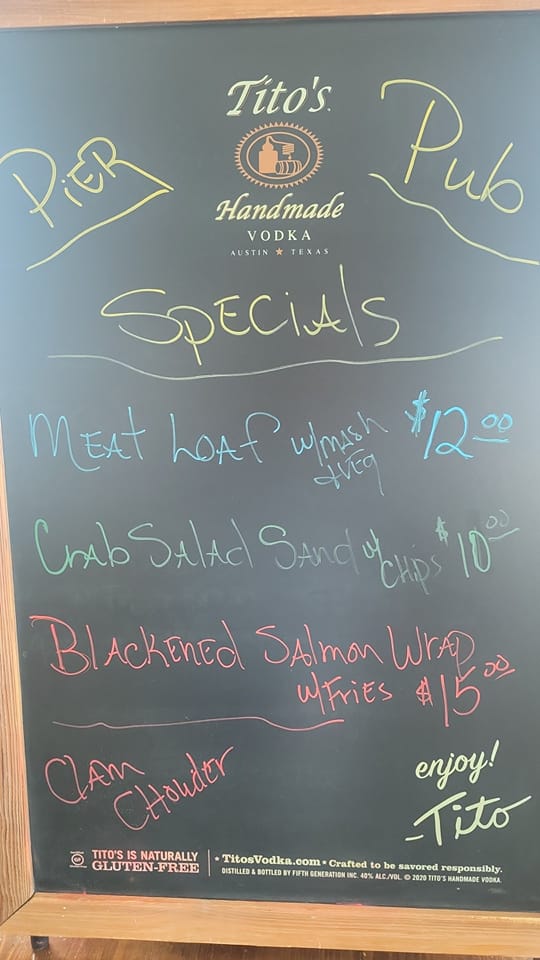 Tito's
PiER Pub
Handmade
VODKA
AUSTIN ★ TEXAS
SPECiAls
MEAT LOAF w/MASH $12.00
+VEG
Crab Salad Sand w/ CHIPS $10.00
BLACKENED SAlmon WRAP
w/FRiES $15.00
CLAM
CHOWDER
enjoy!
-Tito
TITO'S IS NATURALLY
GLUTEN-FREE
★ TitosVodka.com ★ Crafted to be savored responsibly.
DISTILLED & BOTTLED BY FIFTH GENERATION INC. 40% ALC./VOL. © 2020 TITO'S HANDMADE VODKA.